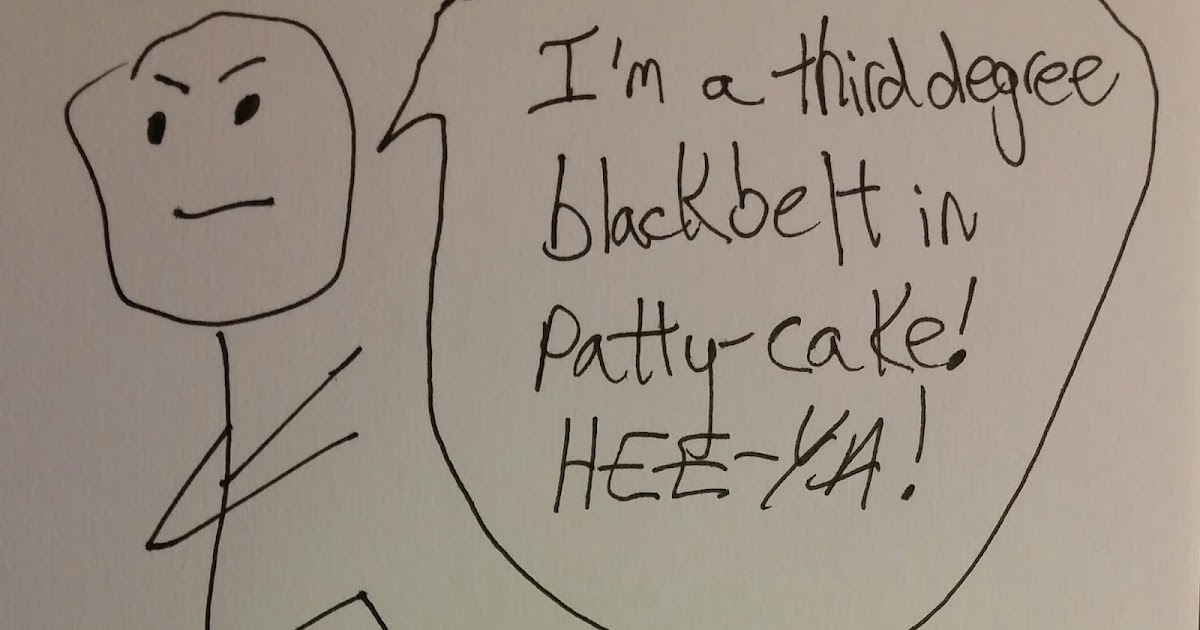 I'm a third degree
blackbelt in
Patty-cake!
HEE-YA!